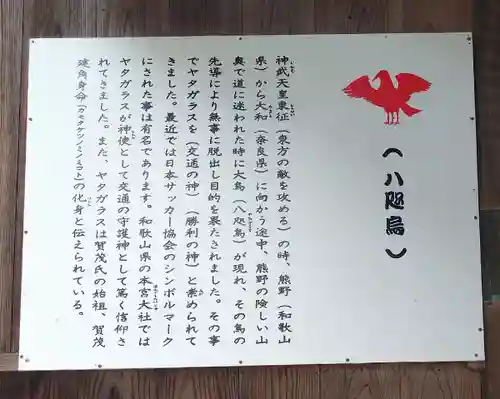 （八咫烏）
神武天皇東征（東方の敵を攻める）の時、熊野（和歌山
県）から大和（奈良県）に向かう途中、熊野の険しい山
奥で道に迷われた時に大鳥（八咫烏）が現れ、その鳥の
先導により無事に脱出し目的を果たされました。その事
でヤタガラスを（交通の神）（勝利の神）と崇められて
きました。最近では日本サッカー協会のシンボルマーク
にされた事は有名であります。和歌山県の本宮大社では
ヤタガラスが神使として交通の守護神として篤く信仰さ
れてきました。また、ヤタガラスは賀茂氏の始祖、賀茂
建角身命（カモタケツノミノミコト）の化身と伝えられている。